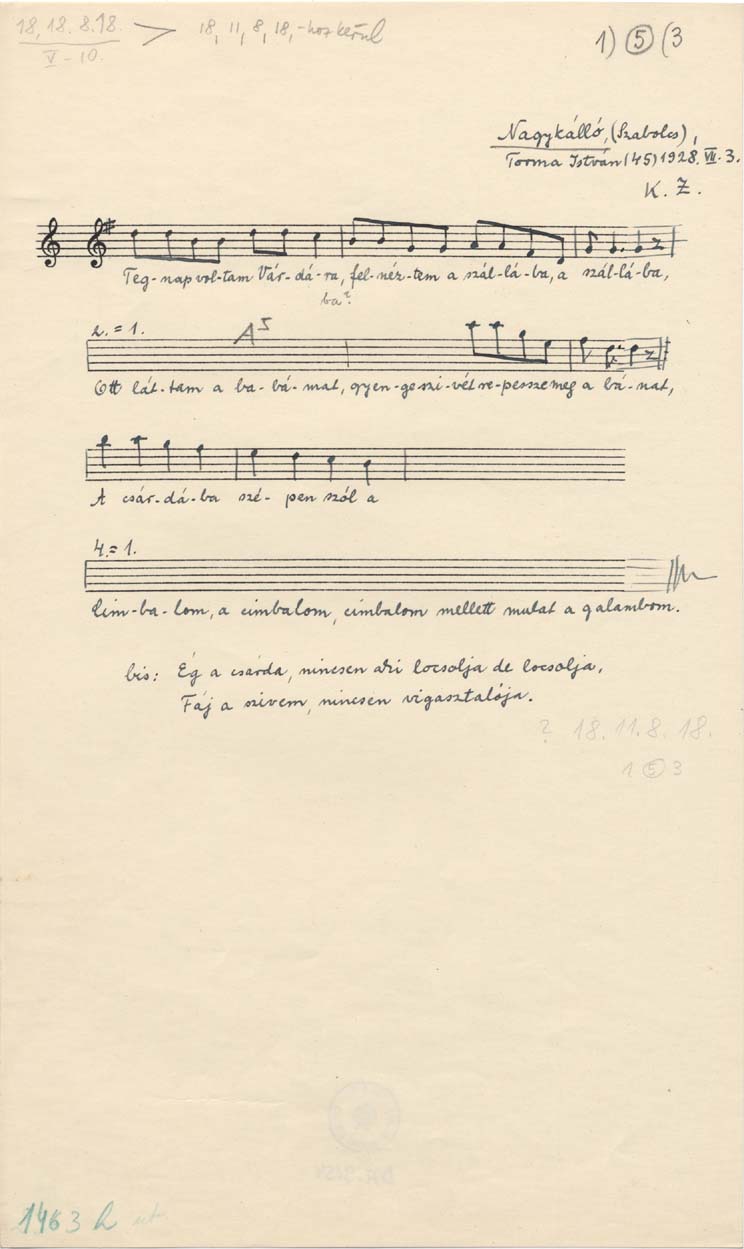 18, 18. 8. 18. > 18, 11, 8, 18,-hoz kerül
V - 10.
1) 5 (3
Nagykálló, (Szabolcs),
Torma István (45) 1928. VII. 3.
K. Z.
Teg-nap vol-tam Vár-dá-ra, fel-néz-tem a szál-lá-ba, a szál-lá-ba,
ba?
2. = 1. A5
Ott lát-tam a ba-bá-mat, gyen-ge szi-vét re-pessze meg a bá-nat,
A csár-dá-ba szé-pen szól a
4. = 1.
Cim-ba-lom, a cimbalom, cimbalom mellett mulat a galambom.
bis: Ég a csárda, nincsen aki locsolja de locsolja,
Fáj a szivem, nincsen vigasztalója.
? 18. 11. 8. 18.
1 5 3
1463